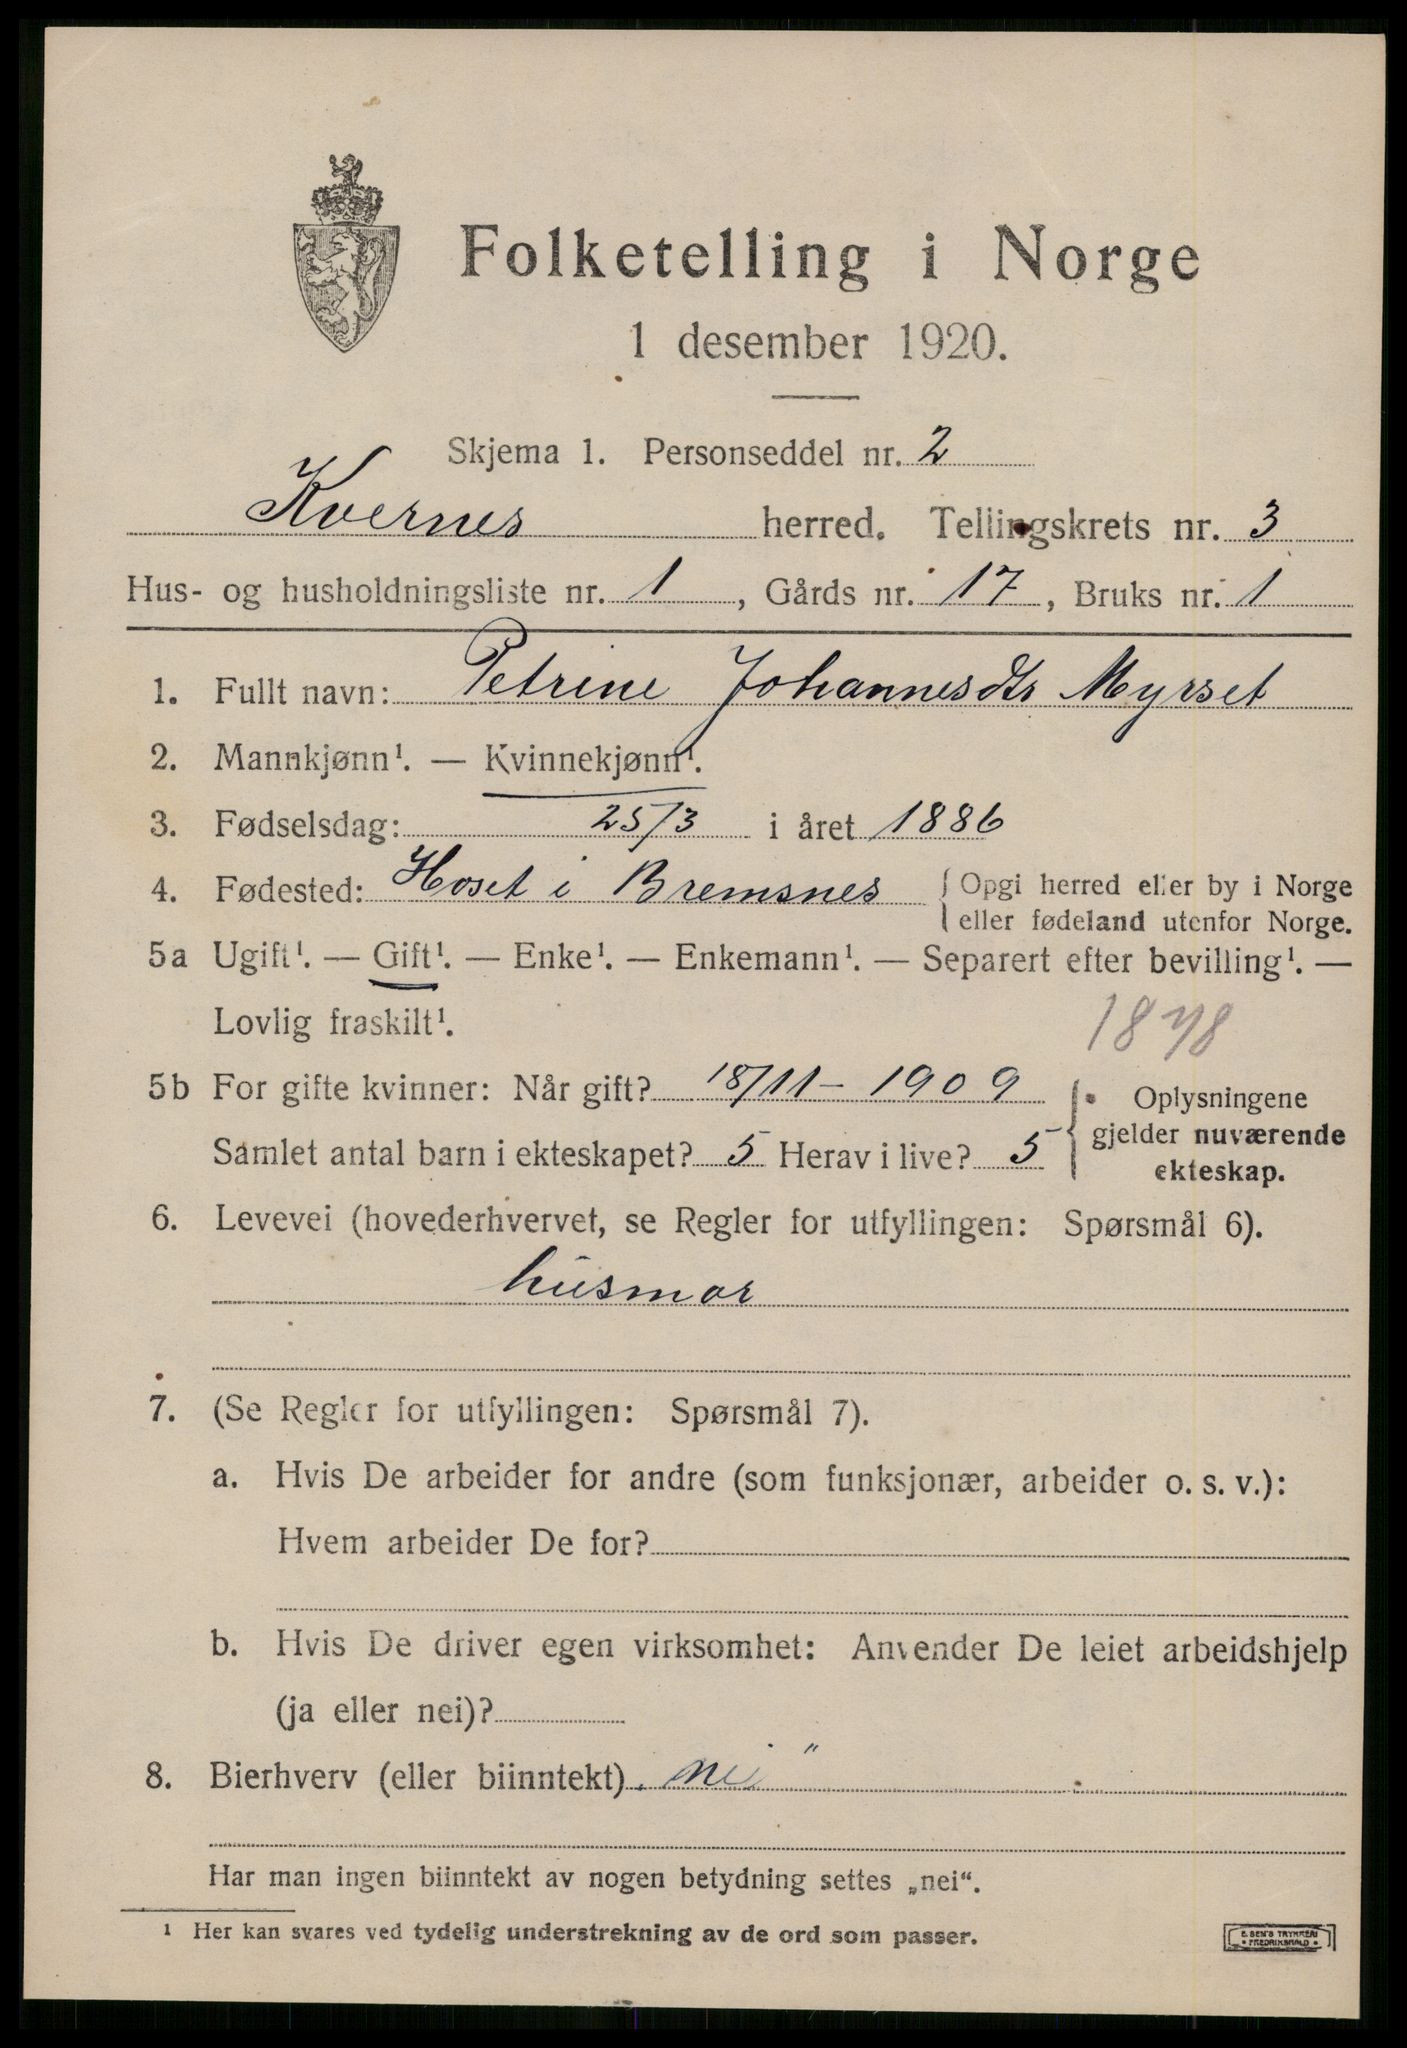 Folketelling i Norge
1 desember 1920.
Skjema 1. Personseddel nr. 2
Kvernes herred. Tellingskrets nr. 3
Hus- og husholdningsliste nr. 1, Gårds nr. 17, Bruks nr. 1
1. Fullt navn: Petrine Johannesdtr Myrset
2. Mannkjønn¹. — Kvinnekjønn¹.
3. Fødselsdag: 25/3 i året 1886
4. Fødested: Hoset i Bremsnes { Opgi herred eller by i Norge
eller fødeland utenfor Norge.
5a Ugift¹. — Gift¹. — Enke¹. — Enkemann¹. — Separert efter bevilling¹. —
Lovlig fraskilt¹.
1878
5b For gifte kvinner: Når gift? 18/11 - 1909
Samlet antal barn i ekteskapet? 5 Herav i live? 5
{ Oplysningene
gjelder nuværende
ekteskap.
6. Levevei (hovederhvervet, se Regler for utfyllingen: Spørsmål 6).
husmor
7. (Se Regler for utfyllingen: Spørsmål 7).
a. Hvis De arbeider for andre (som funksjonær, arbeider o. s. v.):
Hvem arbeider De for?
b. Hvis De driver egen virksomhet: Anvender De leiet arbeidshjelp
(ja eller nei)?
8. Bierhverv (eller biinntekt) „nei"
Har man ingen biinntekt av nogen betydning settes „nei“.
¹ Her kan svares ved tydelig understrekning av de ord som passer.
E. SEM'S TRYKKERI
• FREDRIKSHALD •